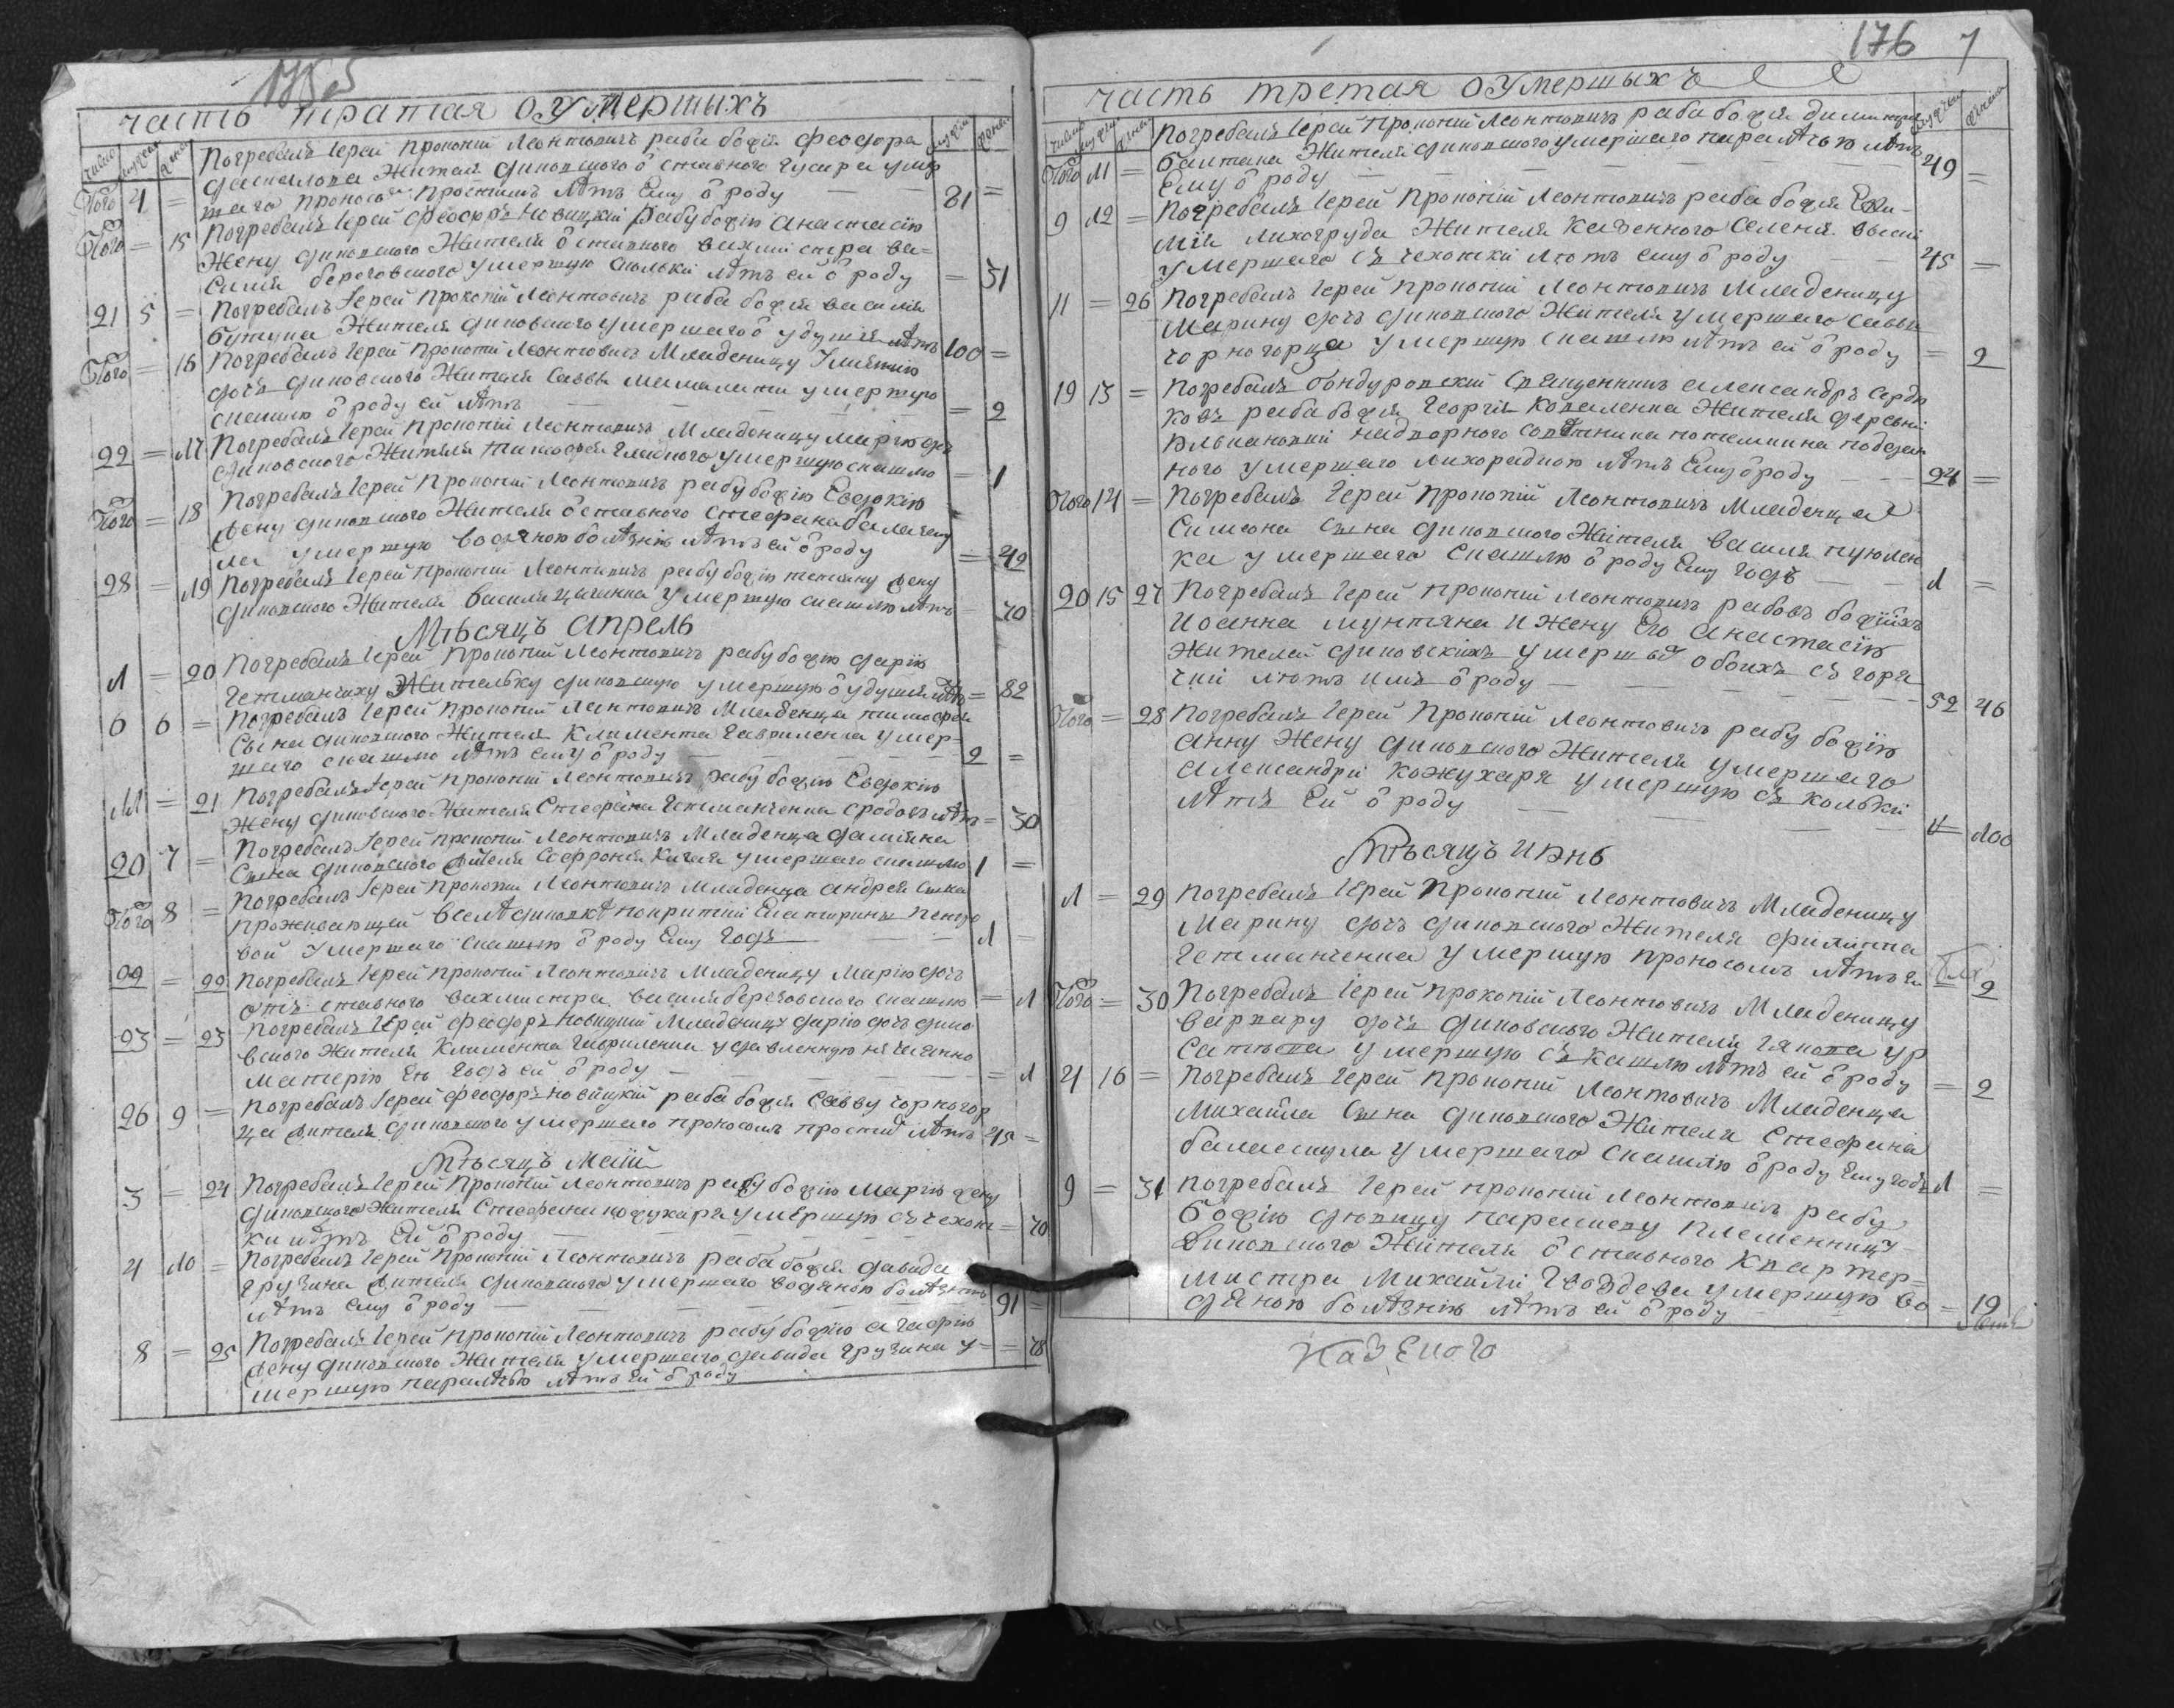 175
часть третая о умершыхъ
число мужеск женск
Погребалъ Іерей Прокопій Леонтовичъ раба божія Феодора
жителя диковского отставного гусара умер
шаго проносомъ простимъ лѣтъ Ему ѿ роду — — 81 =
Того 4 =
Того = 15 Погребалъ Іерей Феодоръ Новицкій рабу божію Анастасію
Жену диковского Жителя отставного вахмистра ва=
силія береговского умершую сколькі лѣтъ ей ѿ роду = 31
21 5 = Погребалъ Іерей Прокопій Леонтовичъ раба божія василія
бутука Жителя диковского умершаго ѿ удушія лѣтъ 100 =
Того = 16 Погребалъ Іерей Прокопій Леонтовичъ Младеницу Улиянію
дочь диковского Жителя Саввы мамалиги умершую
скашлю ѿ роду ей лѣтъ — — — = 2
22 = 17 Погребалъ Іерей Прокопій Леонтовичъ Младеницу Марію дочь
диковского Жителя тимофея умершую скашлю = 1
Того = 18 Погребалъ Іерей Прокопій Леонтовичъ рабу божію Евдокію
жену диковского Жителя отставного Стефана
ла умершую водяною болѣзнію лѣтъ ей ѿ роду = 42
28 = 19 Погребалъ Іерей Прокопій Леонтовичъ рабу божію татіану жену
диковского Жителя василия цыганка умершую скашлю лѣтъ 70
Мѣсяцъ Апрель
1 = 20 Погребалъ Іерей Прокопій Леонтовичъ рабу божію дарію
Гетманчиху Жительку диковскую умершую ѿ удушія лѣтъ = 82
6 6 = Погребалъ Іерей Прокопій Леонтовичъ Младенца тимофея
Сына диковского Жителя Климента Гавриленка умер=
шаго скашлю лѣтъ ему ѿ роду — — 2 =
11 = 21 Погребалъ Іерей Прокопій Леонтовичъ рабу божію Евдокію
Жену диковского Жителя Стефана Гетманченка сродовъ лѣтъ = 30
20 7 = Погребалъ Іерей Прокопій Леонтовичъ Младенца дамияна
Сына диковского жителя Софронія Качая умершаго скашлю 1 =
Того 8 = Погребалъ Іерей Прокопій Леонтовичъ Младенца Андрея Сына
проживающей вселѣ диковкѣ покритки Екатирины
вой умершаго скашлю ѿ роду Ему годъ — — 1 =
22 = 22 Погребалъ Іерей Прокопій Леонтовичъ Младеницу Марію дочь
отъ ставного вахмистра василя березовского скашлю = 1
23 = 23 Погребалъ Іерей Феодоръ Новицкий Младеницу дарію дочь дико
вского Жителя Климента Гавриленка удавленную нечаянно
материю Ею годъ ей ѿ роду — — = 1
26 9 = Погребалъ Іерей Феодоръ новицкій раба божія Савву чорногор
ца жителя диковского умершаго проносомъ простимъ лѣтъ 45 =
Мѣсяцъ Маій
3 = 24 Погребалъ Іерей Прокопий Леонтовичъ рабу божію Марію жену
диковского Жителя Стефана кожухаря умершую съ чехот
ки лѣтъ Ей ѿ роду — — = 70
4 10 = Погребалъ Іерей Прокопій Леонтовичъ раба божія давида
грузина жителя диковского умершаго водяною болѣзнію
лѣтъ ему ѿ роду — — 91 =
8 = 25 Погребалъ Іерей Прокопій Леонтовичъ рабу божію агафію
жену диковского Жителя умершаго давида грузина у=
мершую паралѣчью лѣтъ Ей ѿ роду = 78
176 7
часть третая о умершыхъ
число мужеск женск
Погребалъ Іерей Прокопій Леонтовичъ раба божія димитрия
Того 11 = балтана Жителя диковского умершаго паралѣчью лѣтъ
Ему ѿ роду — — 49 =
9 12 = Погребалъ Іерей Прокопій Леонтовичъ раба божія Ефи=
мія лихогруда Жителя Казенного Селенія
умершаго съ чехоткі лѣтъ ему ѿ роду — 45 =
11 = 26 Погребалъ Іерей Прокопій Леонтовичъ Младеницу
Марину дочь диковского Жителя умершаго Саввы
чорногорца умершую скашлю лѣтъ ей ѿ роду = 2
19 13 = Погребалъ бондуровский Священникъ александръ Сердю
ковъ раба божія Георгія Коваленка Жителя деревни
надворного Совѣтника потемкина
ного умершаго лихорадкою лѣтъ Ему ѿ роду — 24 =
Того 14 = Погребалъ Іерей Прокопій Леонтовичъ Младенца
Симеона Сына диковского Жителя василя
ка умершаго скашлю ѿ роду Ему годъ — 1 =
20 15 27 Погребалъ Іерей Прокопій Леонтовичъ рабовъ божіихъ
Иоанна мунтяна и жену Его анастасію
жителей диковскихъ умершыхъ обоихъ съ горя
чки лѣтъ имъ ѿ роду — — 52 46
Того = 28 Погребалъ Іерей Прокопій Леонтовичъ рабу божію
анну Жену диковского Жителя умершаго
александра кожухаря умершую съ колькі
лѣтъ Ей ѿ роду — — = 100
Мѣсяцъ июнь
1 = 29 Погребалъ Іерей Прокопій Леонтовичъ Младеницу
Марину дочь диковского Жителя филиппа
Гетманченка умершую проносомъ лѣтъ Ей 2
Того = 30 Погребалъ Іерей Прокопій Леонтовичъ Младеницу
варвару дочь диковского Жителя Іякова
умершую съ кашлю лѣтъ ей ѿ роду = 2
4 16 = Погребалъ Іерей Прокопій Леонтовичъ Младенца
михаила Сына диковского Жителя Стефана
балаескула умершаго скашлю ѿ роду Ему годъ 1 =
9 = 31 Погребалъ Іерей Прокопій Леонтовичъ рабу
божію дѣвицу параскеву племенницу
диковского Жителя отставного квартер=
мистра михаила Гвоздева умершую во
дяною болѣзнію лѣтъ ей ѿ роду = 19
Казеного